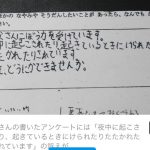 かのなやみや そうだんしたいことがあったら、なんでも
父さんにぼう力を受けています。
中に起こされたり起きているときにけられた
たたかれたりされています。
、どうにかできませんか。
さんの書いたアンケートには「夜中に起こさ
り、起きているときにけられたりたたかれた
れています」の答えが